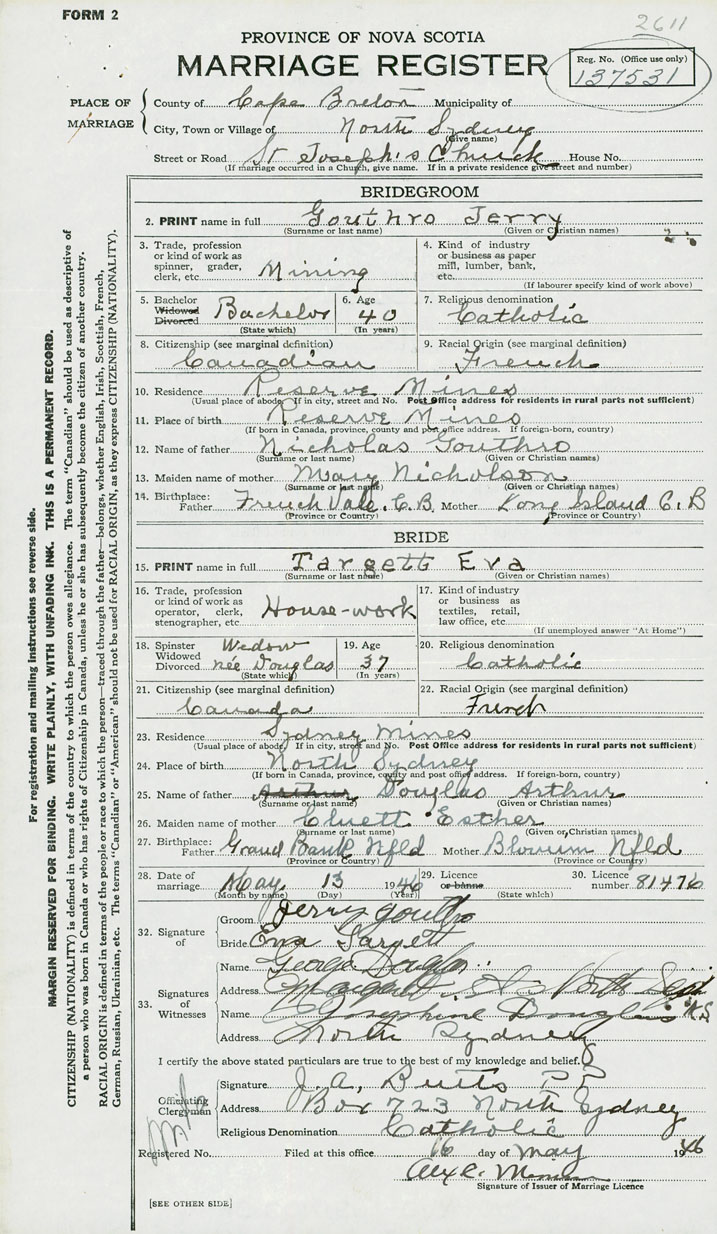 FORM 2
2611
PROVINCE OF NOVA SCOTIA
MARRIAGE REGISTER
Reg. No. (Office use only)
137531
PLACE OF MARRIAGE
County of Cape Breton Municipality of
City, Town or Village of North Sydney
(Give name)
Street or Road St Joseph's Church House No.
(If marriage occurred in a Church, give name. If in a private residence give street and number)
BRIDEGROOM
2. PRINT name in full Gouthro Jerry
(Surname or last name) (Given or Christian names)
3. Trade, profession or kind of work as spinner, grader, clerk, etc. Mining
4. Kind of industry or business as paper mill, lumber, bank, etc.
(If labourer specify kind of work above)
5. Bachelor Widowed Divorced Bachelor
(State which)
6. Age 40
(In years)
7. Religious denomination
Catholic
8. Citizenship (see marginal definition)
Canadian
9. Racial Origin (see marginal definition)
French
10. Residence Reserve Mines
(Usual place of abode. If in city, street and No. Post Office address for residents in rural parts not sufficient)
11. Place of birth Reserve Mines
(If born in Canada, province, county and post office address. If foreign-born, country)
12. Name of father Nicholas Gouthro
(Surname or last name) (Given or Christian names)
13. Maiden name of mother Mary Nicholson
(Surname or last name) (Given or Christian names)
14. Birthplace: Father French Vale, C.B. Mother Long Island C.B
(Province or Country) (Province or Country)
BRIDE
15. PRINT name in full Targett Eva
(Surname or last name) (Given or Christian names)
16. Trade, profession or kind of work as operator, clerk, stenographer, etc. House-work
17. Kind of industry or business as textiles, retail, law office, etc.
(If unemployed answer "At Home")
18. Spinster Widowed Divorced Widow née Douglas
(State which)
19. Age 37
(In years)
20. Religious denomination
Catholic
21. Citizenship (see marginal definition)
Canada
22. Racial Origin (see marginal definition)
French
23. Residence Sydney Mines
(Usual place of abode. If in city, street and No. Post Office address for residents in rural parts not sufficient)
24. Place of birth North Sydney
(If born in Canada, province, county and post office address. If foreign-born, country)
25. Name of father Arthur Douglas Arthur
(Surname or last name) (Given or Christian names)
26. Maiden name of mother Cluett Esther
(Surname or last name) (Given or Christian names)
27. Birthplace: Father Grand Bank Nfld Mother Nfld
(Province or Country) (Province or Country)
28. Date of marriage May 13 1946
(Month by name) (Day) (Year)
29. Licence or banns
(State which)
30. Licence number 81476
32. Signature of
Groom Jerry Gouthro
Bride Eva Targett
33. Signatures of Witnesses
Name George Douglas
Address Margaret St North Syd
Name Josephine Douglas N.S.
Address North Sydney
I certify the above stated particulars are true to the best of my knowledge and belief.
Officiating Clergyman
Signature J. A. Butts P.P.
Address Box 723 North Sydney
Religious Denomination Catholic
Registered No. Filed at this office 16 day of May 1946
Signature of Issuer of Marriage Licence
[SEE OTHER SIDE]
For registration and mailing instructions see reverse side.
MARGIN RESERVED FOR BINDING. WRITE PLAINLY, WITH UNFADING INK. THIS IS A PERMANENT RECORD.
CITIZENSHIP (NATIONALITY) is defined in terms of the country to which the person owes allegiance. The term "Canadian" should be used as descriptive of
a person who was born in Canada or who has rights of Citizenship in Canada, unless he or she has subsequently become the citizen of another country.
RACIAL ORIGIN is defined in terms of the people or race to which the person—traced through the father—belongs, whether English, Irish, Scottish, French,
German, Russian, Ukrainian, etc. The terms "Canadian" or "American" should not be used for RACIAL ORIGIN, as they express CITIZENSHIP (NATIONALITY).